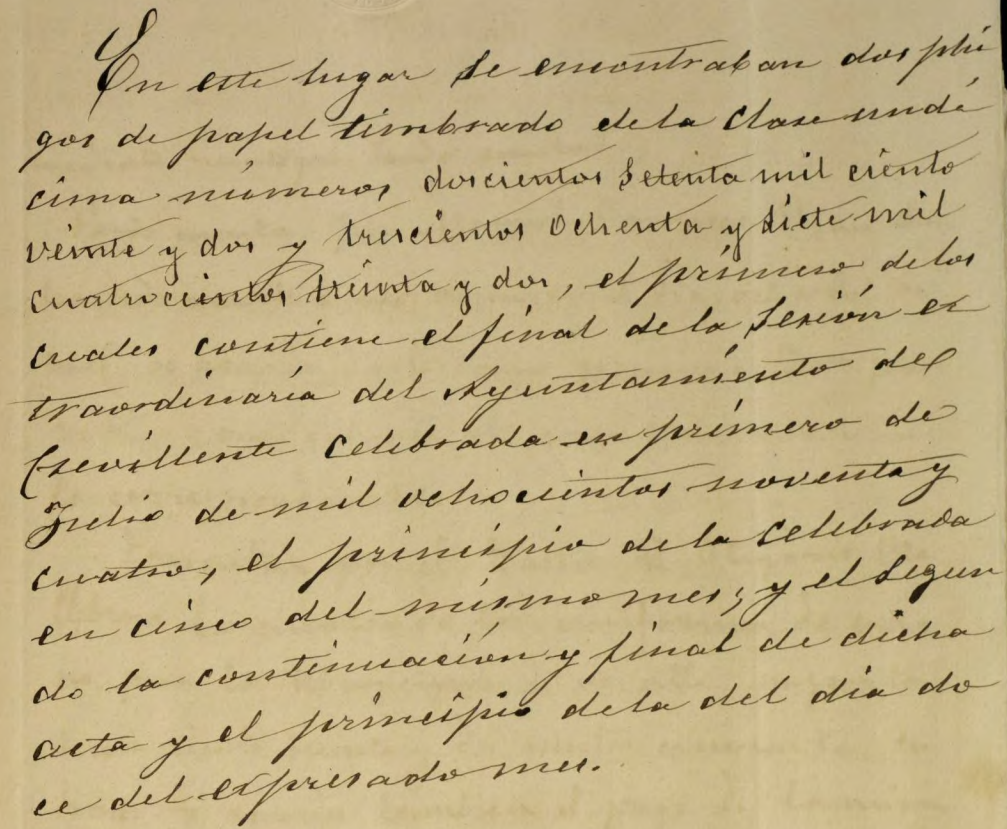 En este lugar se encontraban dos plie
gos de papel timbrado de la clase undé
cima números, doscientos setenta mil ciento
veinte y dos y trescientos ochenta y siete mil
cuatrocientos treinta y dos, el primero de los
cuales contiene el final de la sesión ex
traordinaria del Ayuntamiento de
Crevillente celebrada en primero de
Julio de mil ochocientos noventa y
cuatro, el principio de la celebrada
en cinco del mismo mes, y el segun
do la continuación y final de dicha
acta y el principio de la del día do
ce del expresado mes.